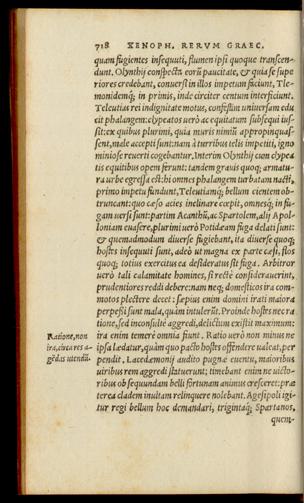 718 XENOPH. RERVM GRAEC.
quam fugientes insequuti, flumen ipsi quoque transcen-
dunt. Olynthij conspecta eorũ paucitate, & quia se supe
riores credebant, conuersi in illos impetum faciunt, Tle-
monidemq́; in primis, inde circiter centum interficiunt.
Teleutias rei indignitate motus, confestim uniuersam edu
cit phalangem: clypeatos uerò ac equitatum subsequi ius-
sit: ex quibus plurimi, quia muris nimiũ appropinquas-
sent, male accepti sunt: nam à turribus telis impetiti, igno
miniose reuerti cogebantur. Interim Olynthij cum clypea
tis equitibus opem ferunt: tandem grauis quoq; armatu-
ra urbe egressa est: hi omnes phalangem turbatam nacti,
primo impetu fundunt, Teleutiamq́; bellum cientem ob-
truncant: quo cæso acies inclinare cœpit, omnesq́; in fu-
gam uersi sunt: partim Acanthũ, ac Spartolem, alij Apol-
loniam euasere, plurimi uerò Potidæam fuga delati sunt:
& quemadmodum diuerse fugiebant, ita diuerse quoq;
hostes insequuti sunt, adeò ut magna ex parte cæsi, flos
quoq; totius exercitus ea desideratus sit fuga. Arbitror
uerò tali calamitate homines, si rectè considerauerint,
prudentiores reddi debere: nam neq; domesticos ira com-
motos plectere decet: sæpius enim domini irati maiora
perpessi sunt mala, quàm intulerũt. Proinde hostes nec ra
tione, sed inconsultè aggredi, delictũ existit maximum:
Ratione, non ira enim temerè omnia fiunt. Ratio uerò non minus ne
ira, circa res a- ipsa lædatur, quàm quo pacto hostes offendere ualeat, per
gẽdas utendũ. pendit. Lacedæmonij audito pugnæ euentu, maioribus
uiribus rem aggredi statuerunt; timebant enim ne uicto-
ribus ob sequundam belli fortunam animus cresceret: præ
terea cladem inultam relinquere nolebant. Agesipoli igi-
tur regi bellum hoc demandari, trigintaq́; Spartanos,
quem-